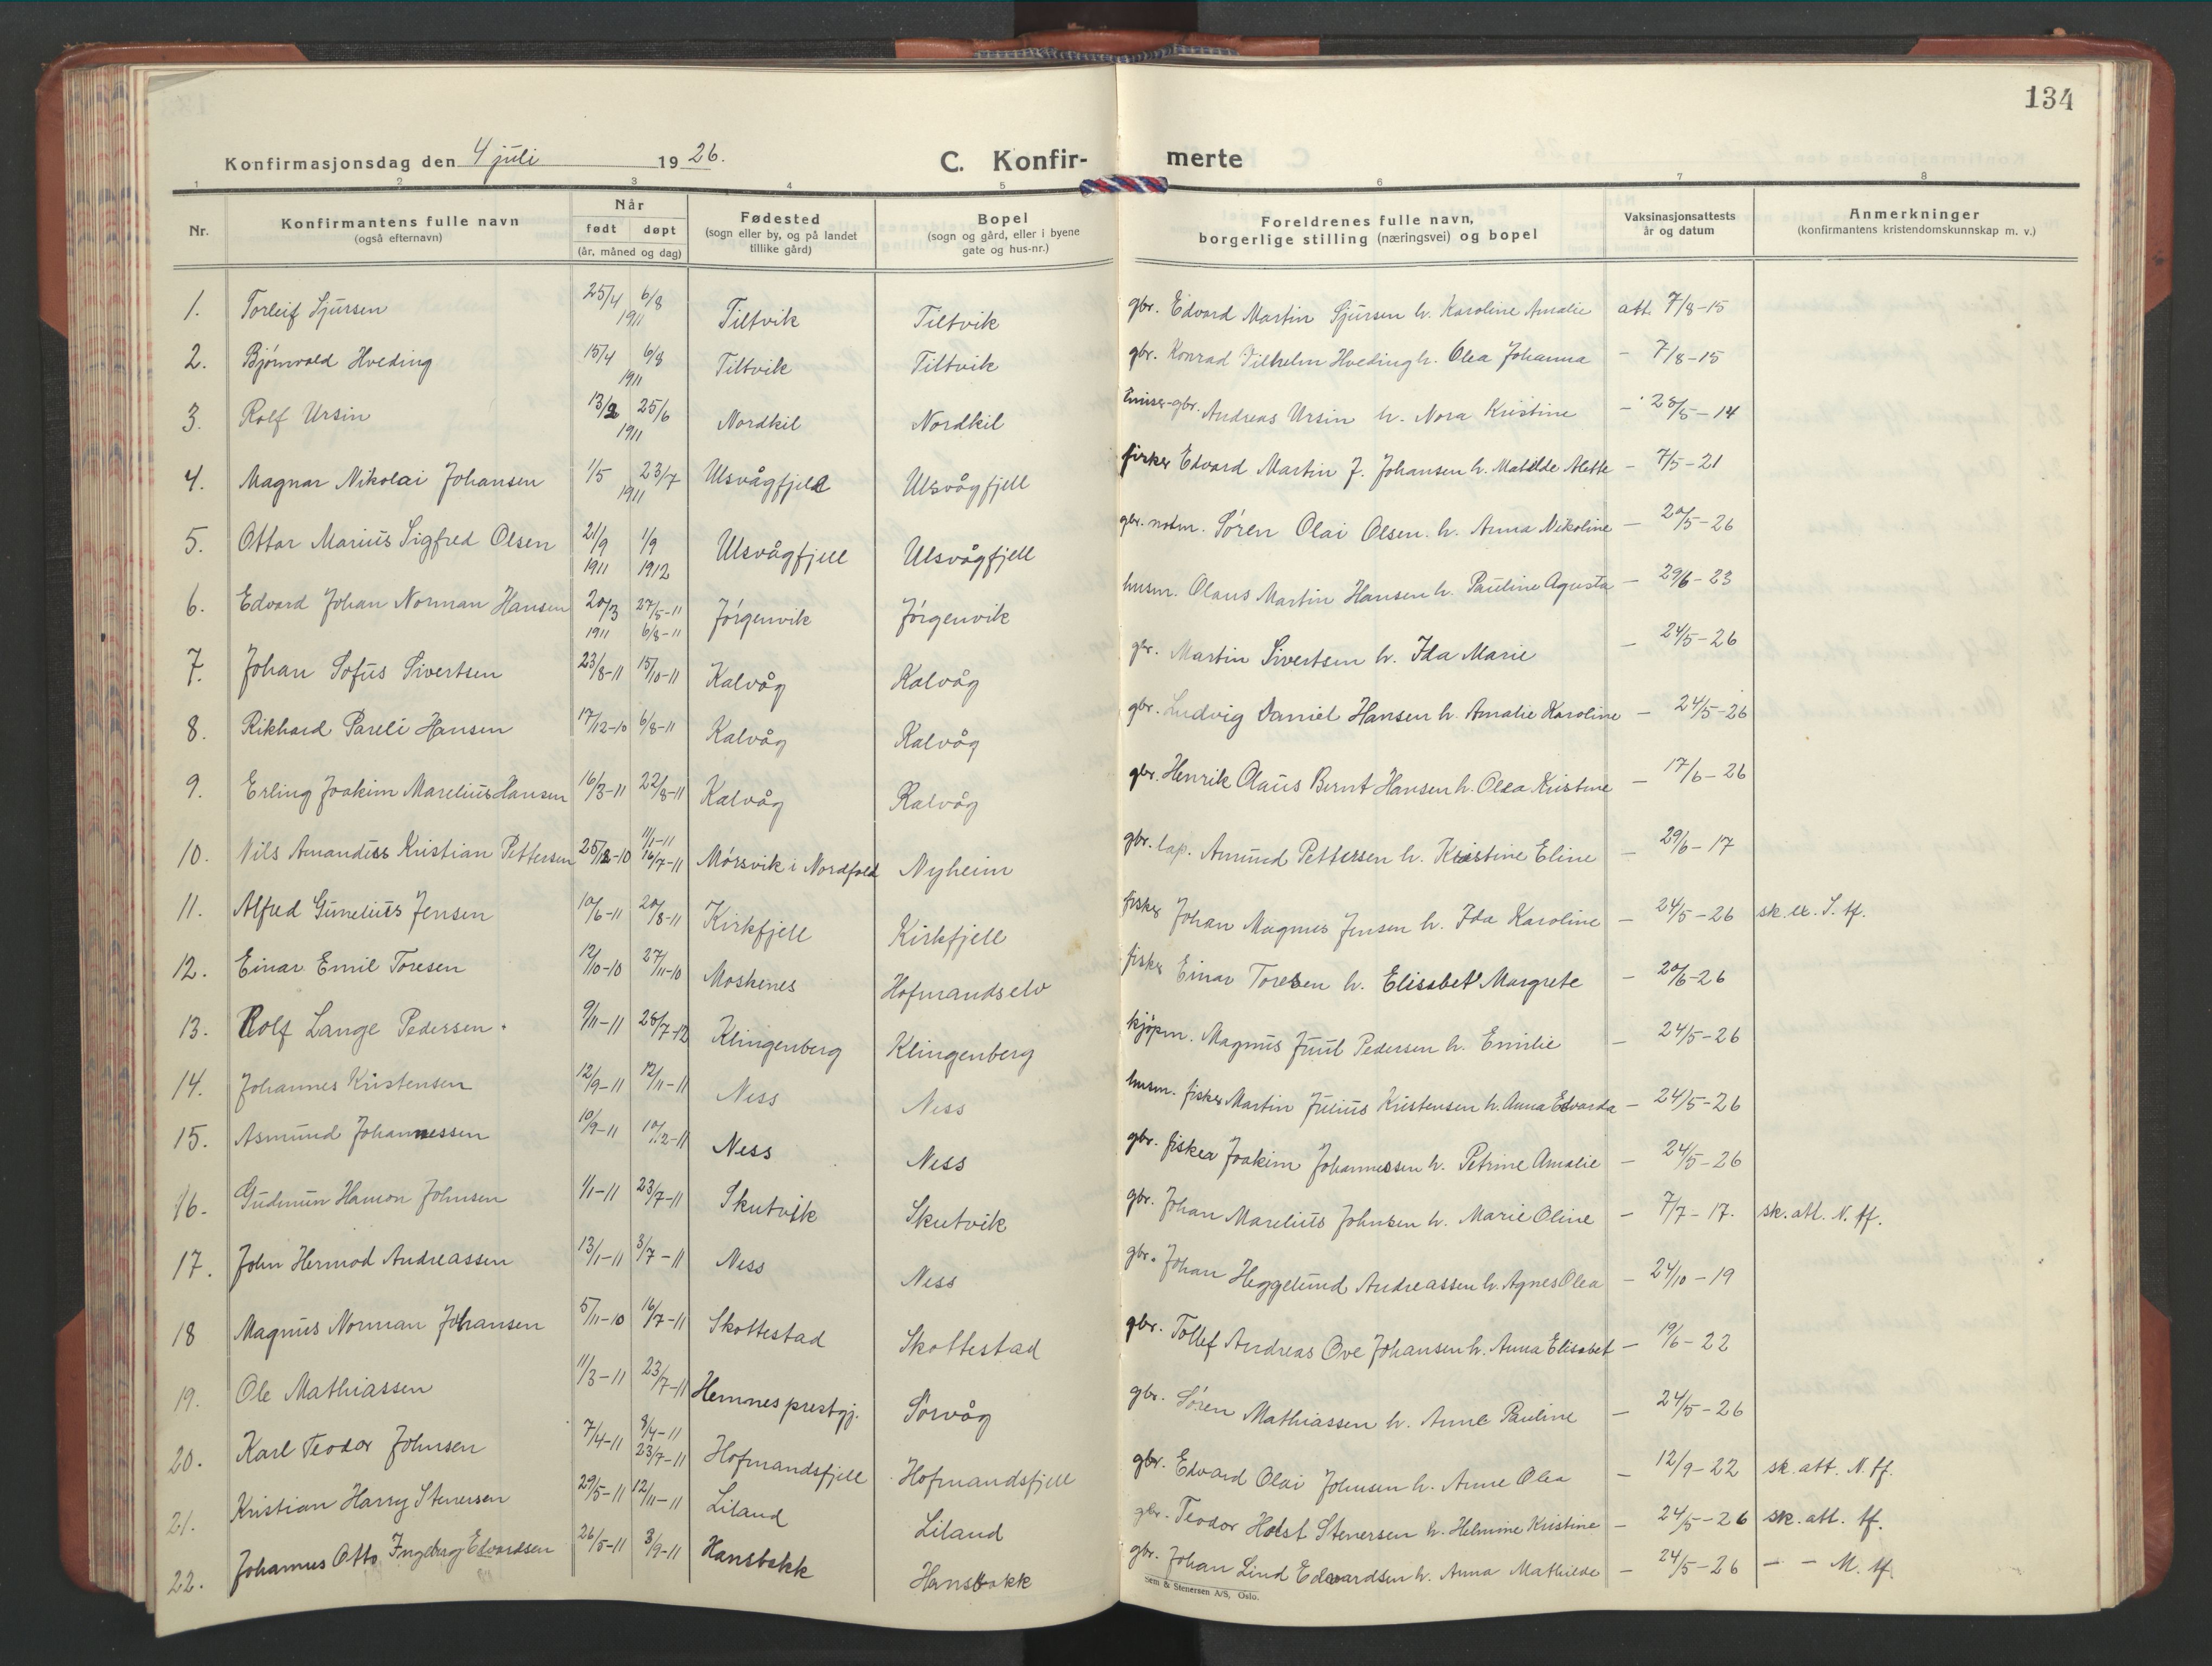 134
Konfirmasjonsdag den 4 juli 1926. C. Konfir- merte
1 2 3 4 5 6 7 8
Nr. Konfirmantens fulle navn (også efternavn) Når født døpt (år, måned og dag) Fødested (sogn eller by, og på landet tillike gård) Bopel (sogn og gård, eller i byene gate og hus-nr.) Foreldrenes fulle navn, borgerlige stilling (næringsvei) og bopel Vaksinasjonsattests år og datum Anmerkninger (konfirmantens kristendomskunnskap m. v.)
1. Torleif Sjursen 25/4 6/8 1911 Tiltvik Tiltvik gbr. Edvard Martin Sjursen h. Karoline Amalie att. 7/8-15
2. Bjørnvald Hveding 15/4 6/8 1911 Tiltvik Tiltvik gbr. Konrad Vilhelm Hveding h. Olea Johanna - 7/8-15
3. Rolf Ursin 13/2 25/6 1911 Nordkil Nordkil gbr. Andreas Ursin h. Nora Kristine - 28/5-14
4. Magnar Nikolai Johansen 1/5 23/7 1911 Ulsvågfjell Ulsvågfjell fisker Edvard Martin J. Johansen h. Matilde Alette - 7/5-21
5. Ottar Marius Sigfred Olsen 21/9 1911 1/9 1912 Ulsvågfjell Ulsvågfjell gbr. notm. Søren Olai Olsen h. Anna Nikoline - 20/5-26
6. Edvard Johan Norman Hansen 20/3 1911 27/5-11 6/8-11 Jørgenvik Jørgenvik husm. Olaus Martin Hansen h. Pauline Agusta - 29/6-23
7. Johan Sofus Sivertsen 23/8-11 15/10-11 Kalvåg Kalvåg gbr. Martin Sivertsen h. Ida Marie - 24/5-26
8. Rikhard Pareli Hansen 17/12-10 6/8-11 Kalvåg Kalvåg gbr. Ludvig Daniel Hansen h. Amalie Karoline - 24/5-26
9. Erling Joakim Marelius Hansen 16/3-11 22/8-11 Kalvåg Kalvåg gbr. Henrik Olaus Bernt Hansen h. Olea Kristine - 17/6-26
10. Nils Amandus Kristian Pettersen 25/12-10 11/1-11 16/7-11 Mørsvik i Nordfold Nyheim gbr. lap. Amund Pettersen h. Kristine Eline - 29/6-17
11. Alfred Gunelius Jensen 10/6-11 20/8-11 Kirkfjell Kirkfjell fisker Johan Magnus Jensen h. Ida Karoline - 24/5-26 sk. ex. S. tf.
12. Einar Emil Toresen 12/10-10 27/11-10 Moskenes Hofmandselv fisker Einar Toresen h. Elisabet Margrete - 20/6-26
13. Rolf Lange Pedersen 9/11-11 28/7-12 Klingenberg Klingenberg kjøpm. Magnus Juul Pedersen h. Emilie - 24/5-26
14. Johannes Kristensen 12/9-11 12/11-11 Ness Ness husm. fisker Martin Julius Kristensen h. Anna Edvarda - 24/5-26
15. Asmund Johannessen 10/9-11 10/12-11 Ness Ness gbr. fisker Joakim Johannessen h. Petrine Amalie - 24/5-26
16. Gudmun Hamon Johnsen 1/1-11 23/7-11 Skutvik Skutvik gbr. Johan Marelius Johnsen h. Marie Oline - 7/7-17. sk. att. N. tf.
17. John Hermod Andreassen 13/1-11 3/7-11 Ness Ness gbr. Johan Heggelund Andreassen h. Agnes Olea - 24/10-19
18 Magnus Norman Johansen 5/11-10 16/7-11 Skottestad Skottestad gbr. Tollef Andreas Ove Johansen h. Anna Elisabet - 19/6-22
19. Ole Mathiassen 11/3-11 23/7-11 Hemnes prestgj. Sørvåg gbr. Søren Mathiassen h. Anne Pauline - 24/5-26
20. Karl Teodor Johnsen 7/4-11 8/4-11 23/7-11 Hofmandsfjell Hofmandsfjell gbr. Edvard Olai Johnsen h. Anne Olea - 12/9-22 sk. att. N. tf.
21. Kristian Harry Stenersen 29/5-11 12/11-11 Liland Liland gbr. Teodor Holst Stenersen h. Helmine Kristine - 24/5-26 sk. att. tf.
22. Johannes Otto Ingeberg Edvardsen 26/5-11 3/9-11 Hansbakk Hansbakk gbr. Johan Lind Edvardsen h. Anna Mathilde - 24/5-26 - - M. tf.
Sem & Stenersen A/S, Oslo.